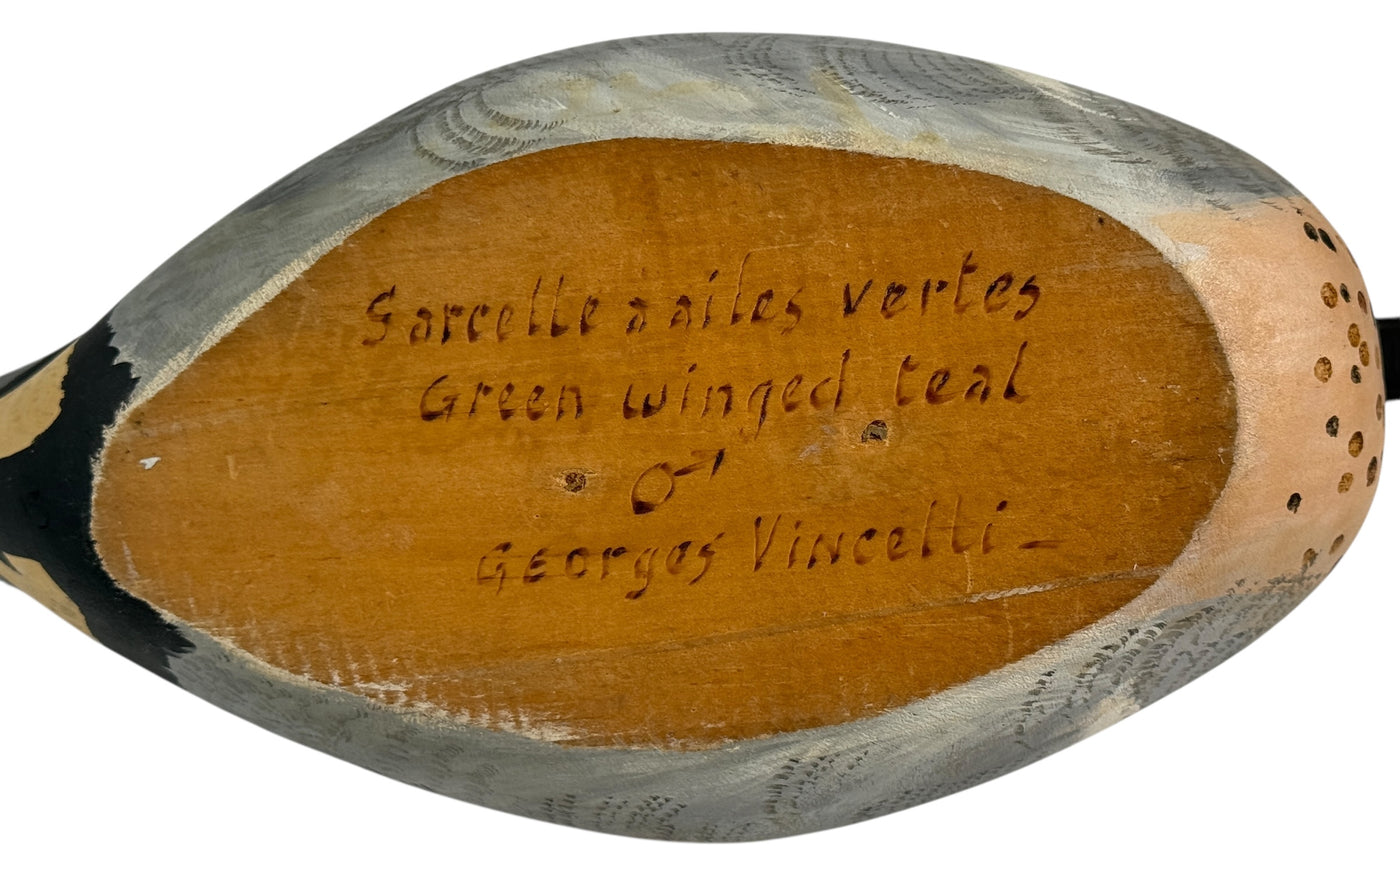 Sarcelle à ailes vertes
Green winged teal
♂
Georges Vincelli